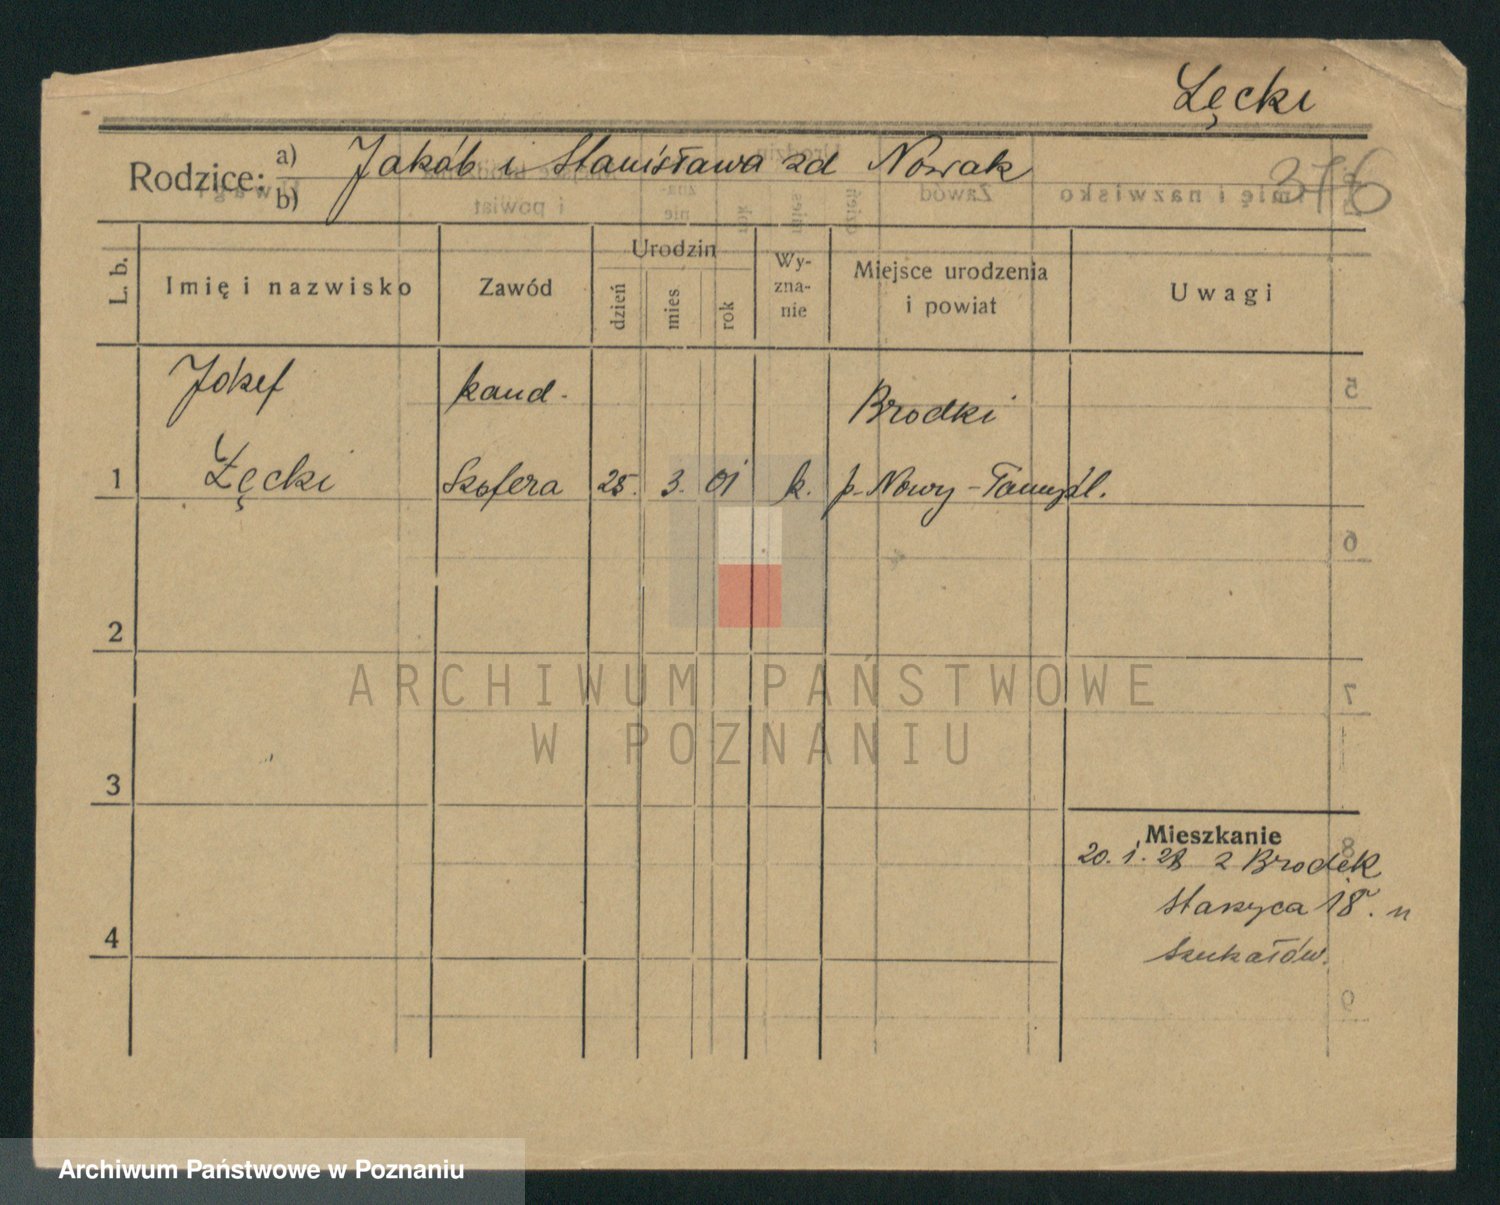 Łęcki
Rodzice: a) Jakób i Stanisława zd Nowak
b)
376
L. b.
Imię i nazwisko
Zawód
Urodzin
dzień
mies
rok
Wy-
zna-
nie
Miejsce urodzenia
i powiat
Uwagi
Józef
kand.
Brodki
1
Łęcki
Szofera
25.
3.
01
k.
p. Nowy-Tomyśl.
2
3
4
Mieszkanie
20. 1. 28 z Brodek
Staszyca 18. u
Szukałów.
ARCHIWUM PAŃSTWOWE
W POZNANIU
Archiwum Państwowe w Poznaniu